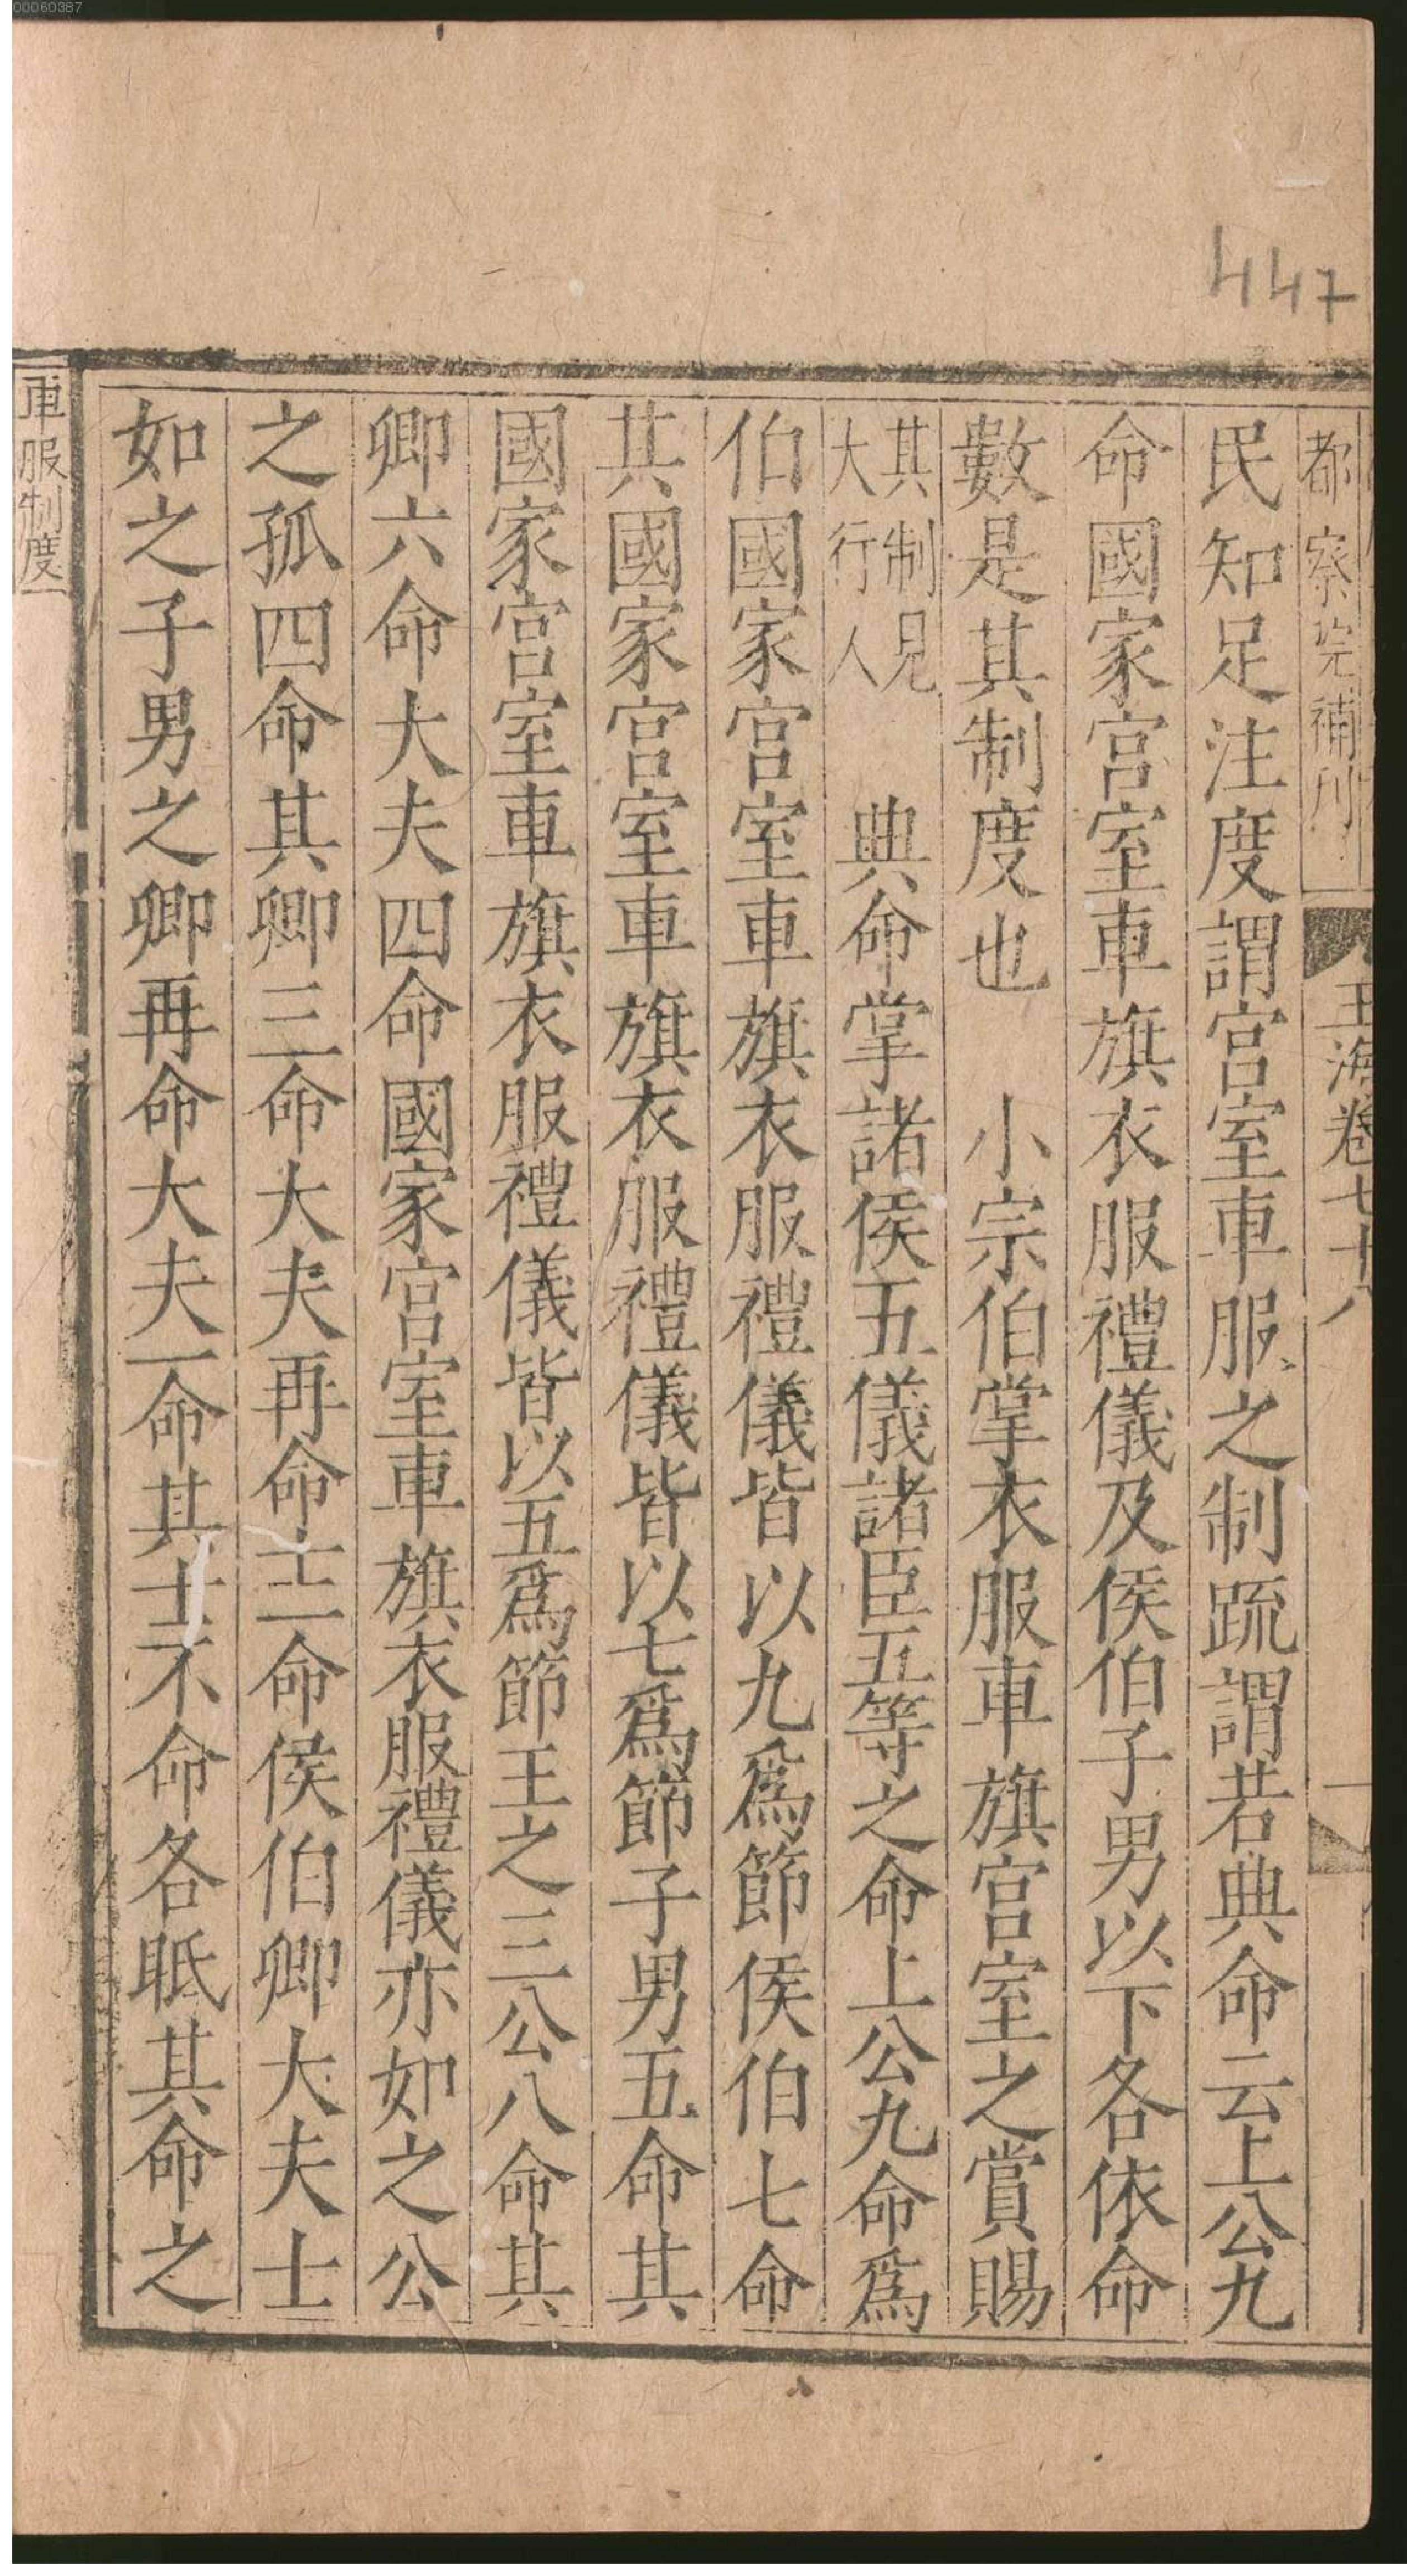 00060387
447
都察完補刋
玉海卷七十八
一
民知足注度謂宮室車服之制疏謂若典命云上公九
命國家宮室車旗衣服禮儀及侯伯子男以下各依命
數是其制度也　小宗伯掌衣服車旗宮室之賞賜
其制見
大行人
典命掌諸侯五儀諸臣五等之命上公九命爲
伯國家宮室車旗衣服禮儀皆以九爲節侯伯七命
其國家宮室車旗衣服禮儀皆以七爲節子男五命其
國家宮室車旗衣服禮儀皆以五爲節王之三公八命其
卿六命大夫四命國家宮室車旗衣服禮儀亦如之公
之孤四命其卿三命大夫再命士一命侯伯卿大夫士
如之子男之卿再命大夫一命其士不命各眡其命之
車服制度一